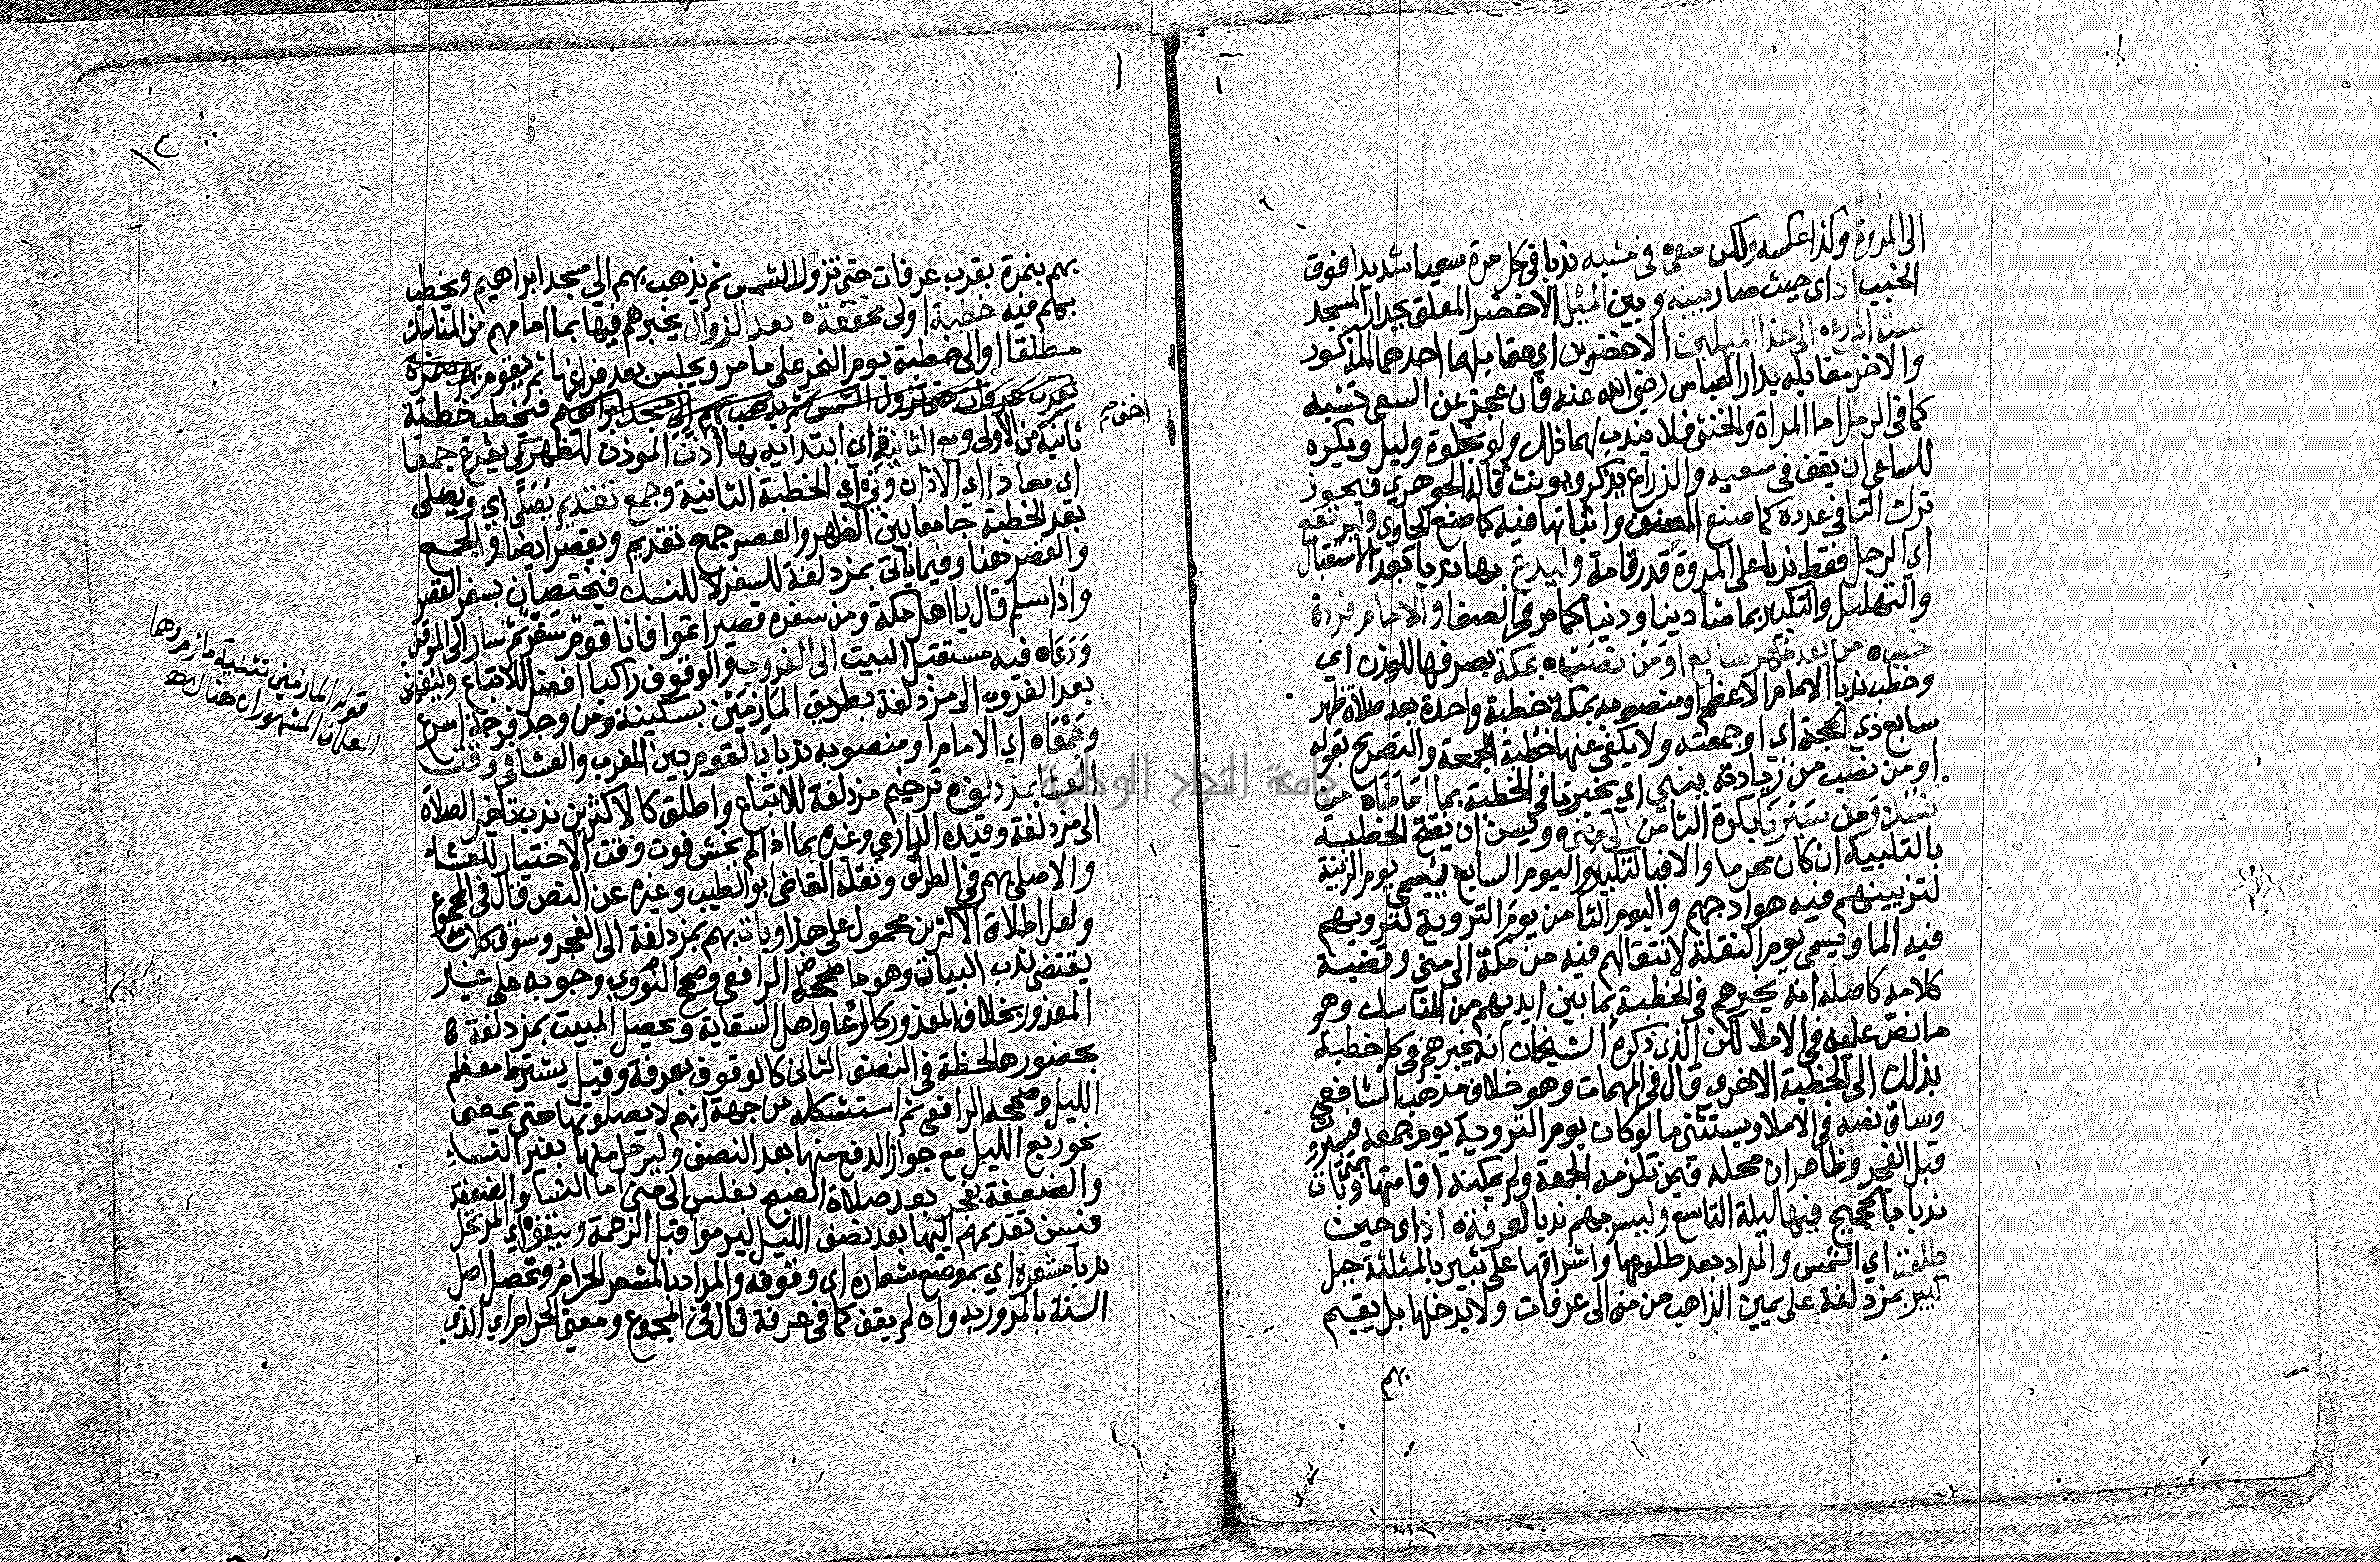 الى المروة وكذا عكسه وليكن سعى في مشيه ندبا في كل مرة سعيا شديدا فوق
الخبب اذ اي حيث صار بينه وبين الميل الاخضر المعلق بجدار المسجد
ستة اذرع الى حذا الميلين الاخضرين اي مقابلهما احدهما المذكور
والاخر مقابله بدار العباس رضي الله عنه فان عجز عن السعي تشبه
كما في الرمل اما المراة والخنثى فلا يندب لهما ذلك ولو بخلوة وليل ويكره
للساعي ان يقف في سعيه والذراع يذكر ويونث قاله الجوهري فيجوز
ترك التا في عدده كما صنع المصنف واثباتها فيه كما صنع الحاوي وليرتفع
اي الرجل فقط ندبا على المروة قدر قامة وليدع بها ندبا بعد الاستقبال
والتهليل والتكبير بما شا دينا ودنيا كما مر في الصفا والامام فردة
خطبه من بعد ظهر سابع او من نصبه بمكة بصرفها للوزن اي
وخطب ندبا الامام الاعظم او منصوبه بمكة خطبة واحدة بعد صلاة ظهر
سابع ذي الحجة اي او جمعته ولا يكفي عنها خطبة الجمعة والتصريح بقوله
او من نصب من زيادته ينبي اي يخبرنا في الخطبة بما امامناه من
نسك ومن سير بنا بكرة الثامن الى منى ويسن ان يفتح الخطبة
بالتلبية ان كان محرما والا فبالتكبير واليوم السابع يسمى يوم الزينة
لتزيينهم فيه هوادجهم واليوم الثامن يوم التروية لترويهم
فيه الما ويسمى يوم النقلة لانتقالهم فيه من مكة الى منى وقضية
كلامه كاصله انه يخبرهم في الخطبة بما بين ايديهم من المناسك وهو
ما نص عليه في الاملا لكن الذي ذكره الشيخان انه يخبرهم في كل خطبة
بذلك الى الخطبة الاخري قال في المهمات وهو خلاف مذهب الشافعي
وساق نصه في الاملا ويستثنى ما لو كان يوم التروية يوم جمعة فيندب
قبل الفجر وظاهر ان محله فيمن تلزمه الجمعة ولم يمكنه اقامتها وبات
ندبا بالحجيج فيها ليلة التاسع وليسر بهم ندبا لعرفة اذ اي حين
طلعت اي الشمس والمراد بعد طلوعها واشراقها على ثبير بالمثلثة جبل
كبير بمزدلفة على يمين الذاهب من منى الى عرفات ولا يدخلها بل يقيم
بهم
١٣
بهم بنمرة بقرب عرفات حتى تزول الشمس ثم يذهب بهم الي مسجد ابراهيم ويخطب
بهم فيه خطبة اولى مخففة بعد الزوال يخبرهم فيها بما امامهم من المناسك
مطلقا او الى خطبة يوم النحر على ما مر ويجلس بعد فراغها ثم يقوم بهم بنمرة
بقرب عرفات حتى تزول الشمس ثم يذهب بهم الى مسجد ابراهيم فيخطب خطبة
ثانية من الاولى ومع الثانية اي ابتدايه بها اذن الموذن للظهر كي يفرغ جمعا
اي معا ذا اي الاذان وذي اي الخطبة الثانية وجمع تقديم يصلي اي ويصلي
بعد الخطبة جامعا بين الظهر والعصر جمع تقديم ويقصر ايضا والجمع
والقصر هنا وفيما ياتي بمزدلفة للسفر لا للنسك فيختصان بسفر القصر
واذا سلم قال يا اهل مكة ومن سفره قصير اتموا فانا قوم سفر ثم سار الى الموقف
ودعاه فيه مستقبل البيت الى الغروب والوقوف راكبا افضل للاتباع وليفيض
بعد الغروب الى مزدلفة بطريق المازمين بسكينة ومن وجد فرجة اسرع
وجمعاه اي الامام او منصوبه ندبا بالقوم بين المغرب والعشا في وقت
العشا بمزدلف ترخيم مزدلفة للاتباع واطلق كالاكثرين ندب تاخير الصلاة
الى مزدلفة وقيده الدارمي وغيره بما اذا لم يخش فوت وقت الاختيار للعشاء
والا صلى بهم في الطريق ونقله القاضي ابو الطيب وغيره عن النص قال في المجموع
ولعل اطلاق الاكثرين محمول على هذا وبات بهم بمزدلفة الى الفجر وسوق كلامه
يقتضي ندب البيات وهو ما صححه الرافعي وصحح النووي وجوبه على غير
المعذور بخلاف المعذور كالرعا واهل السقاية ويحصل المبيت بمزدلفة
بحضورها لحظة في النصف الثاني كالوقوف بعرفة وقيل يشترط معظم
الليل وصححه الرافعي ثم استشكله من جهة انهم لا يصلونها حتى يمضي
نحو ربع الليل مع جواز الدفع منها بعد النصف وليرحل منها بغير النساء
والضعفة بفجر بعد صلاة الصبح بغلس الى منى اما النسا والضعفة
فيسن تقديمهم اليها بعد نصف الليل ليرموا قبل الزحمة ويقف اي المرتحل
ندبا مشعره اي بموضع شعاره اي وقوفه والمراد بالمشعر الحرام وتحصل اصل
السنة بالمرور به وان لم يقف كما في عرفة قال في المجموع ومعنى الحرام اي الذي
اخف صح
قوله المازمين تثنية مازم وهما
العلمان المشهوران هنالك
جامعة النجاح الوطنية